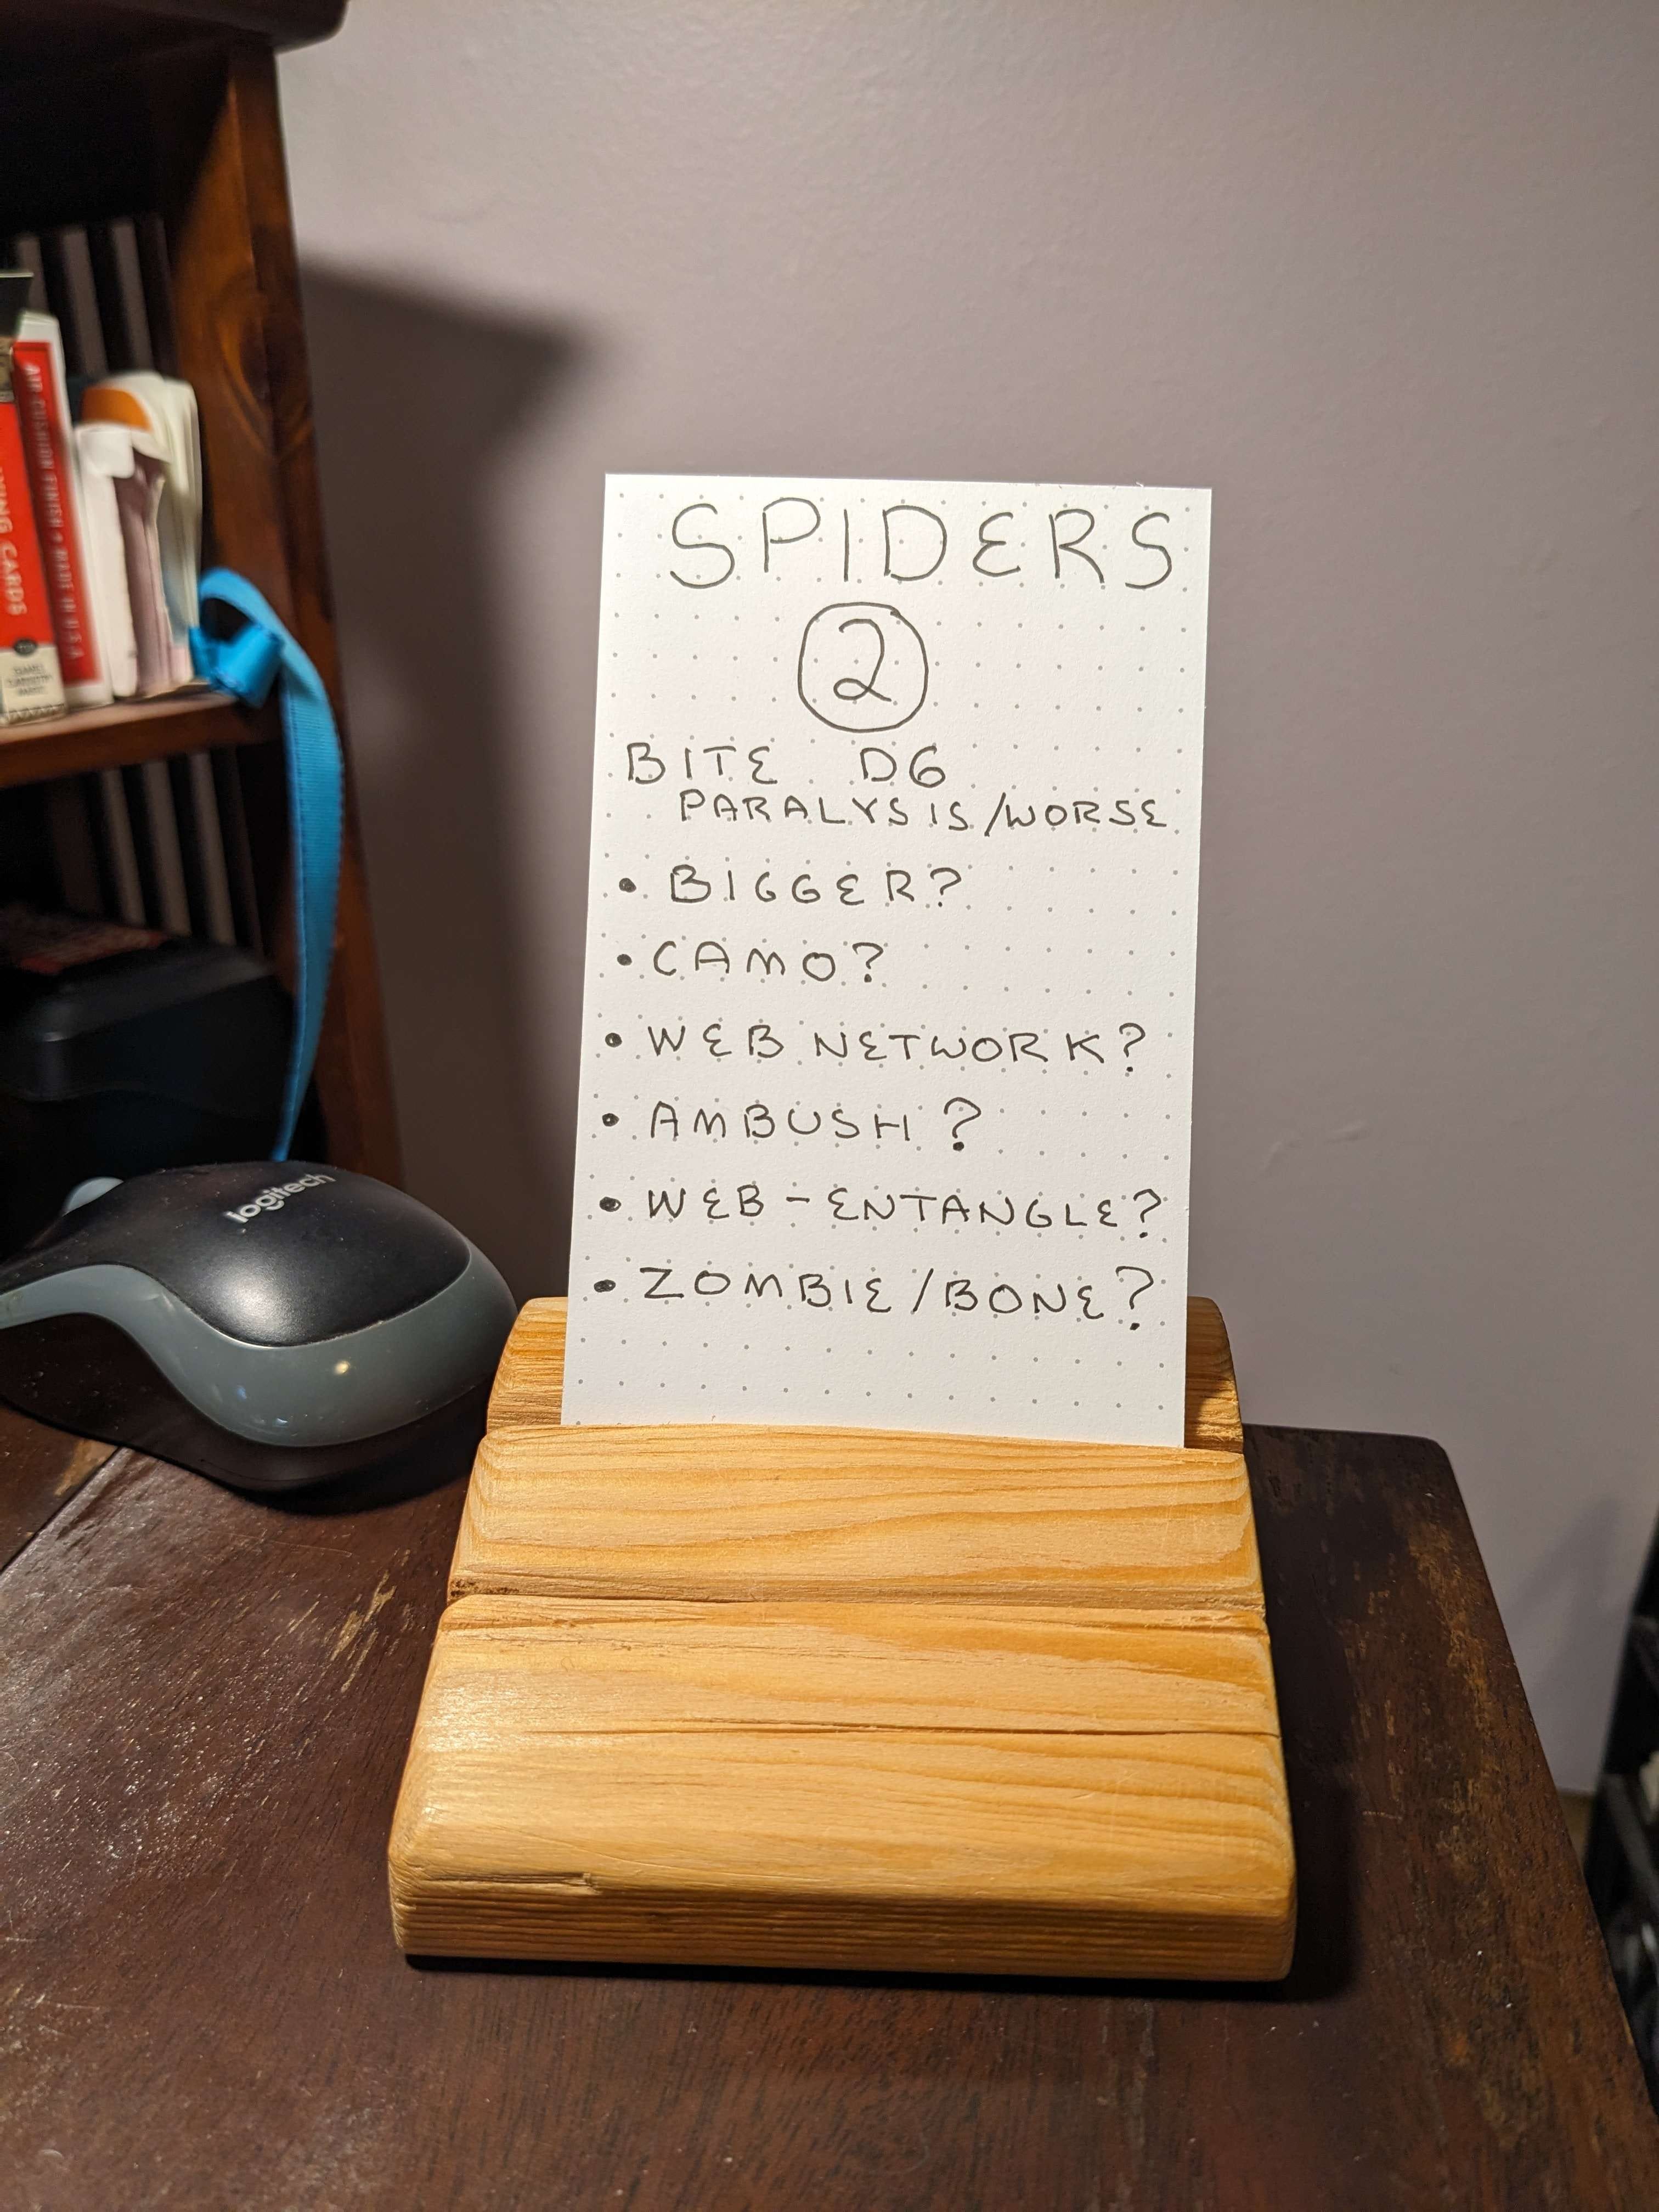 SPIDERS
2
BITE D6
PARALYSIS/WORSE
• BIGGER?
• CAMO?
• WEB NETWORK?
• AMBUSH?
• WEB-ENTANGLE?
• ZOMBIE/BONE?
logitech
AIR-CUSHION FINISH • MADE IN U.S.A.
CARDS